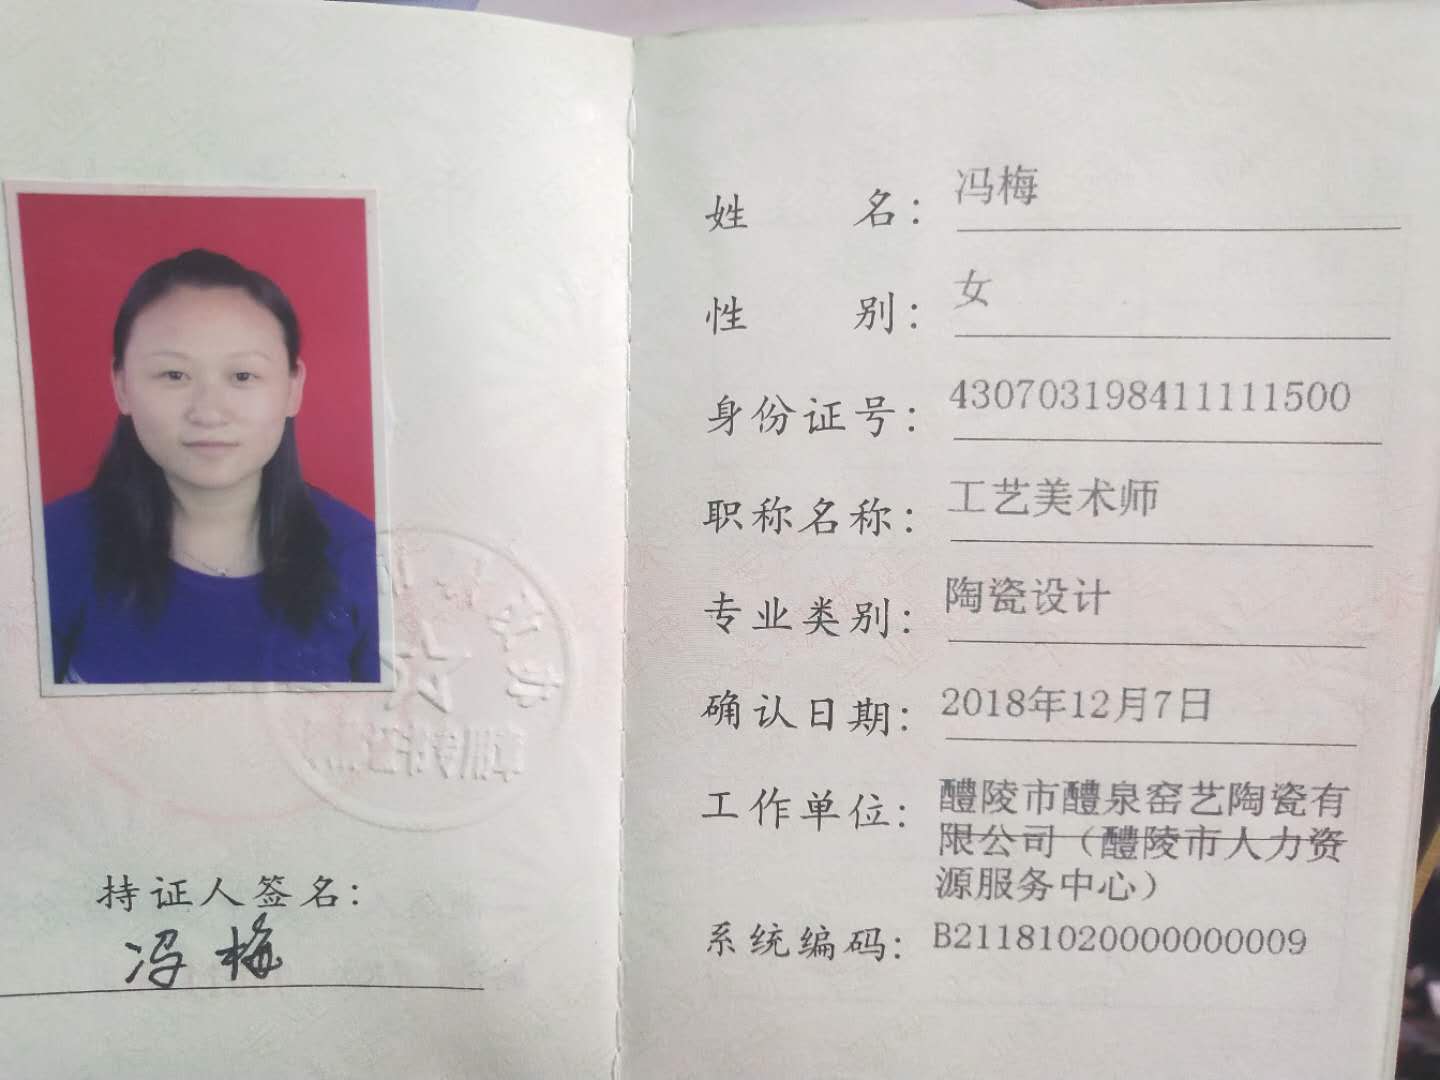 姓名：冯梅
性别：女
身份证号：430703198411111500
职称名称：工艺美术师
专业类别：陶瓷设计
确认日期：2018年12月7日
工作单位：醴陵市醴泉窑艺陶瓷有
限公司（醴陵市人力资
源服务中心）
系统编码：B21181020000000009
持证人签名：
冯梅